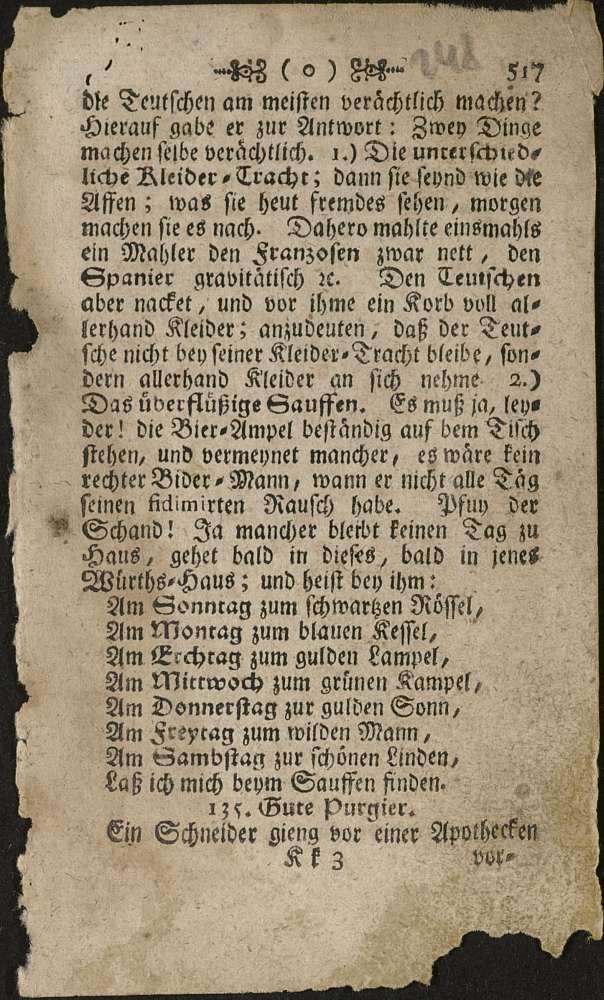 ( o ) 248 517
die Teutschen am meisten verächtlich machen?
Hierauf gabe er zur Antwort: Zwey Dinge
machen selbe verächtlich. 1.) Die unterschied-
liche Kleider-Tracht; dann sie seynd wie die
Affen; was sie heut fremdes sehen, morgen
machen sie es nach. Dahero mahlte einsmahls
ein Mahler den Franzosen zwar nett, den
Spanier gravitätisch ꝛc. Den Teutschen
aber nacket, und vor ihme ein Korb voll al-
lerhand Kleider; anzudeuten, daß der Teut-
sche nicht bey seiner Kleider-Tracht bleibe, son-
dern allerhand Kleider an sich nehme 2.)
Das überflüßige Sauffen. Es muß ja, ley-
der! die Bier-Ampel beständig auf dem Tisch
stehen, und vermeynet mancher, es wäre kein
rechter Bider-Mann, wann er nicht alle Täg
seinen fidimirten Rausch habe. Pfuy der
Schand! Ja mancher bleibt keinen Tag zu
Haus, gehet bald in dieses, bald in jenes
Würths-Haus; und heist bey ihm:
Am Sonntag zum schwartzen Rössel,
Am Montag zum blauen Kessel,
Am Erchtag zum gulden Lampel,
Am Mittwoch zum grünen Kampel,
Am Donnerstag zur gulden Sonn,
Am Freytag zum wilden Mann,
Am Sambstag zur schönen Linden,
Laß ich mich beym Sauffen finden.
135. Gute Purgier.
Ein Schneider gieng vor einer Apothecken
K k 3 vor-